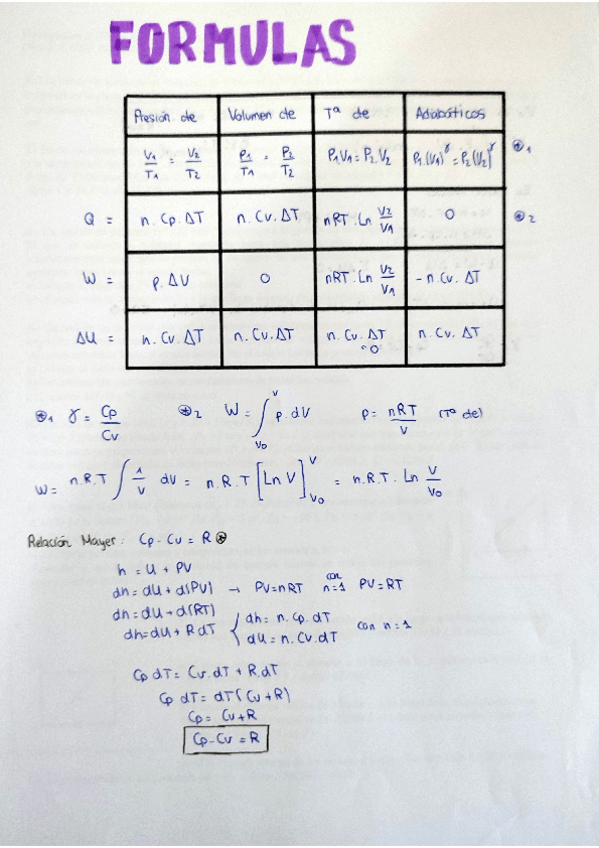 FORMULAS
Presión de | Volumen de | Tª de | Adiabáticos
V1/T1 = V2/T2 | P1/T1 = P2/T2 | P1V1 = P2.V2 | P1.(V1)^γ = P2(V2)^γ ⊛1
Q = | n.Cp.ΔT | n.Cv.ΔT | nRT.Ln V2/V1 | 0 ⊛2
W = | p.ΔV | 0 | nRT.Ln V2/V1 | -n.Cv.ΔT
ΔU = | n.Cv.ΔT | n.Cv.ΔT | n.Cv.ΔT =0 | n.Cv.ΔT
⊛1 γ = Cp/Cv ⊛2 W = ∫_{V0}^{V} p.dV p = nRT/V (Tª de)
W = n.R.T ∫ 1/V dV = n.R.T [Ln V]_{V0}^{V} = n.R.T. Ln V/V0
Relación Mayer: Cp - Cv = R ⊛
h = U + PV
dh = dU + d(PV) → PV=nRT con n=1 PV=RT
dh = dU + d(RT)
dh = dU + R dT { dh = n.Cp.dT
dU = n.Cv.dT con n=1
Cp dT = Cv.dT + R.dT
Cp dT = dT(Cv+R)
Cp = Cv+R
Cp-Cv = R